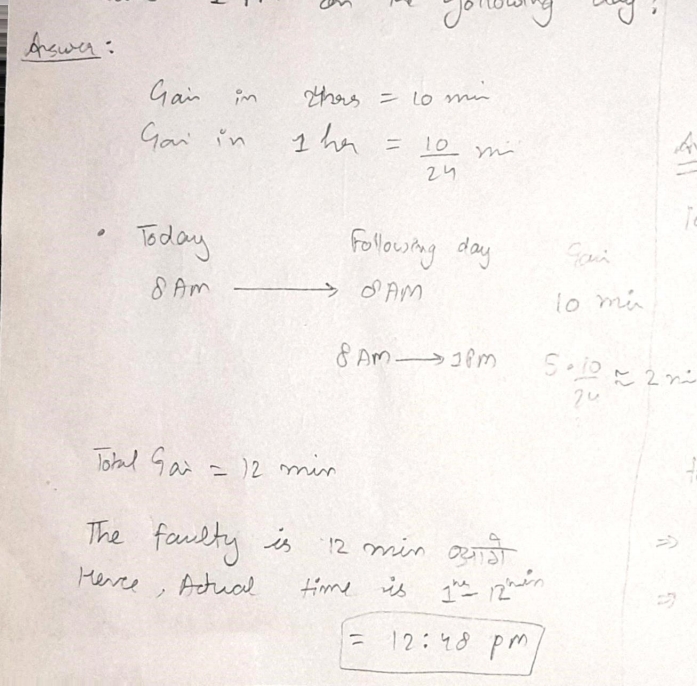 1 P.M. on the following day?
Answer:
Gain in 24hrs = 10 min
Gai in 1 hr = 10/24 mi
• Today Following day Gain
8 AM → 8 AM 10 min
8 AM → 1 PM 5·10/24 ≈ 2 mi
Total Gai = 12 min
The faulty is 12 min आगे
Hence, Actual time is 1hr - 12min
= 12:48 pm